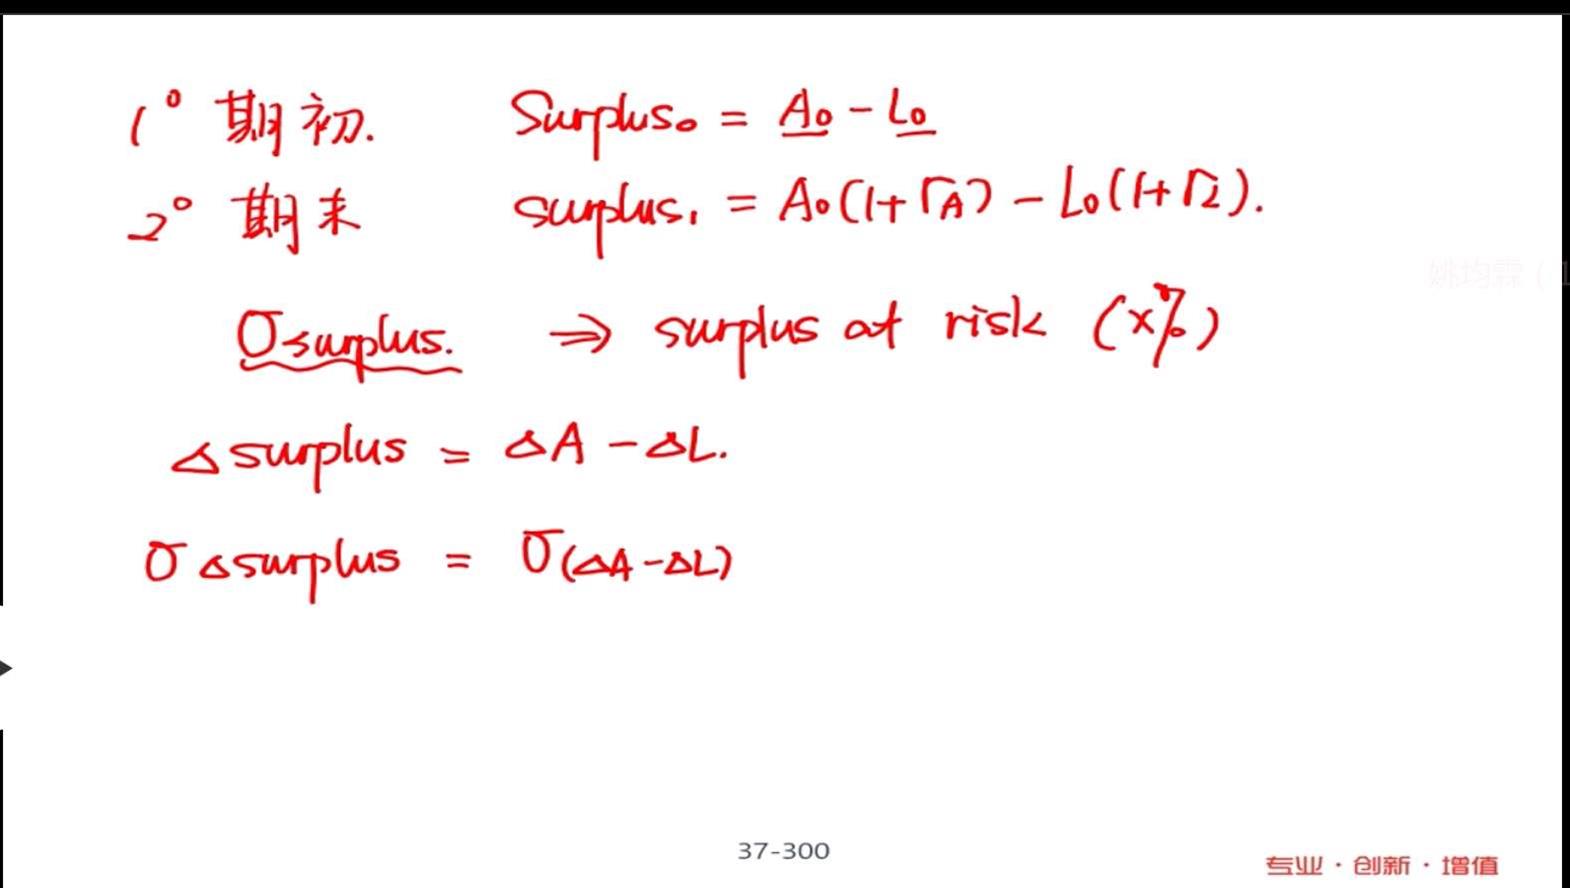 1° 期初. Surplus₀ = A₀ - L₀
2° 期末 surplus₁ = A₀(1+r_A) - L₀(1+r_L).
σsurplus. ⇒ surplus at risk (x%)
Δsurplus = ΔA - ΔL.
σΔsurplus = σ(ΔA-ΔL)
姚均霖（1
37-300
专业·创新·增值